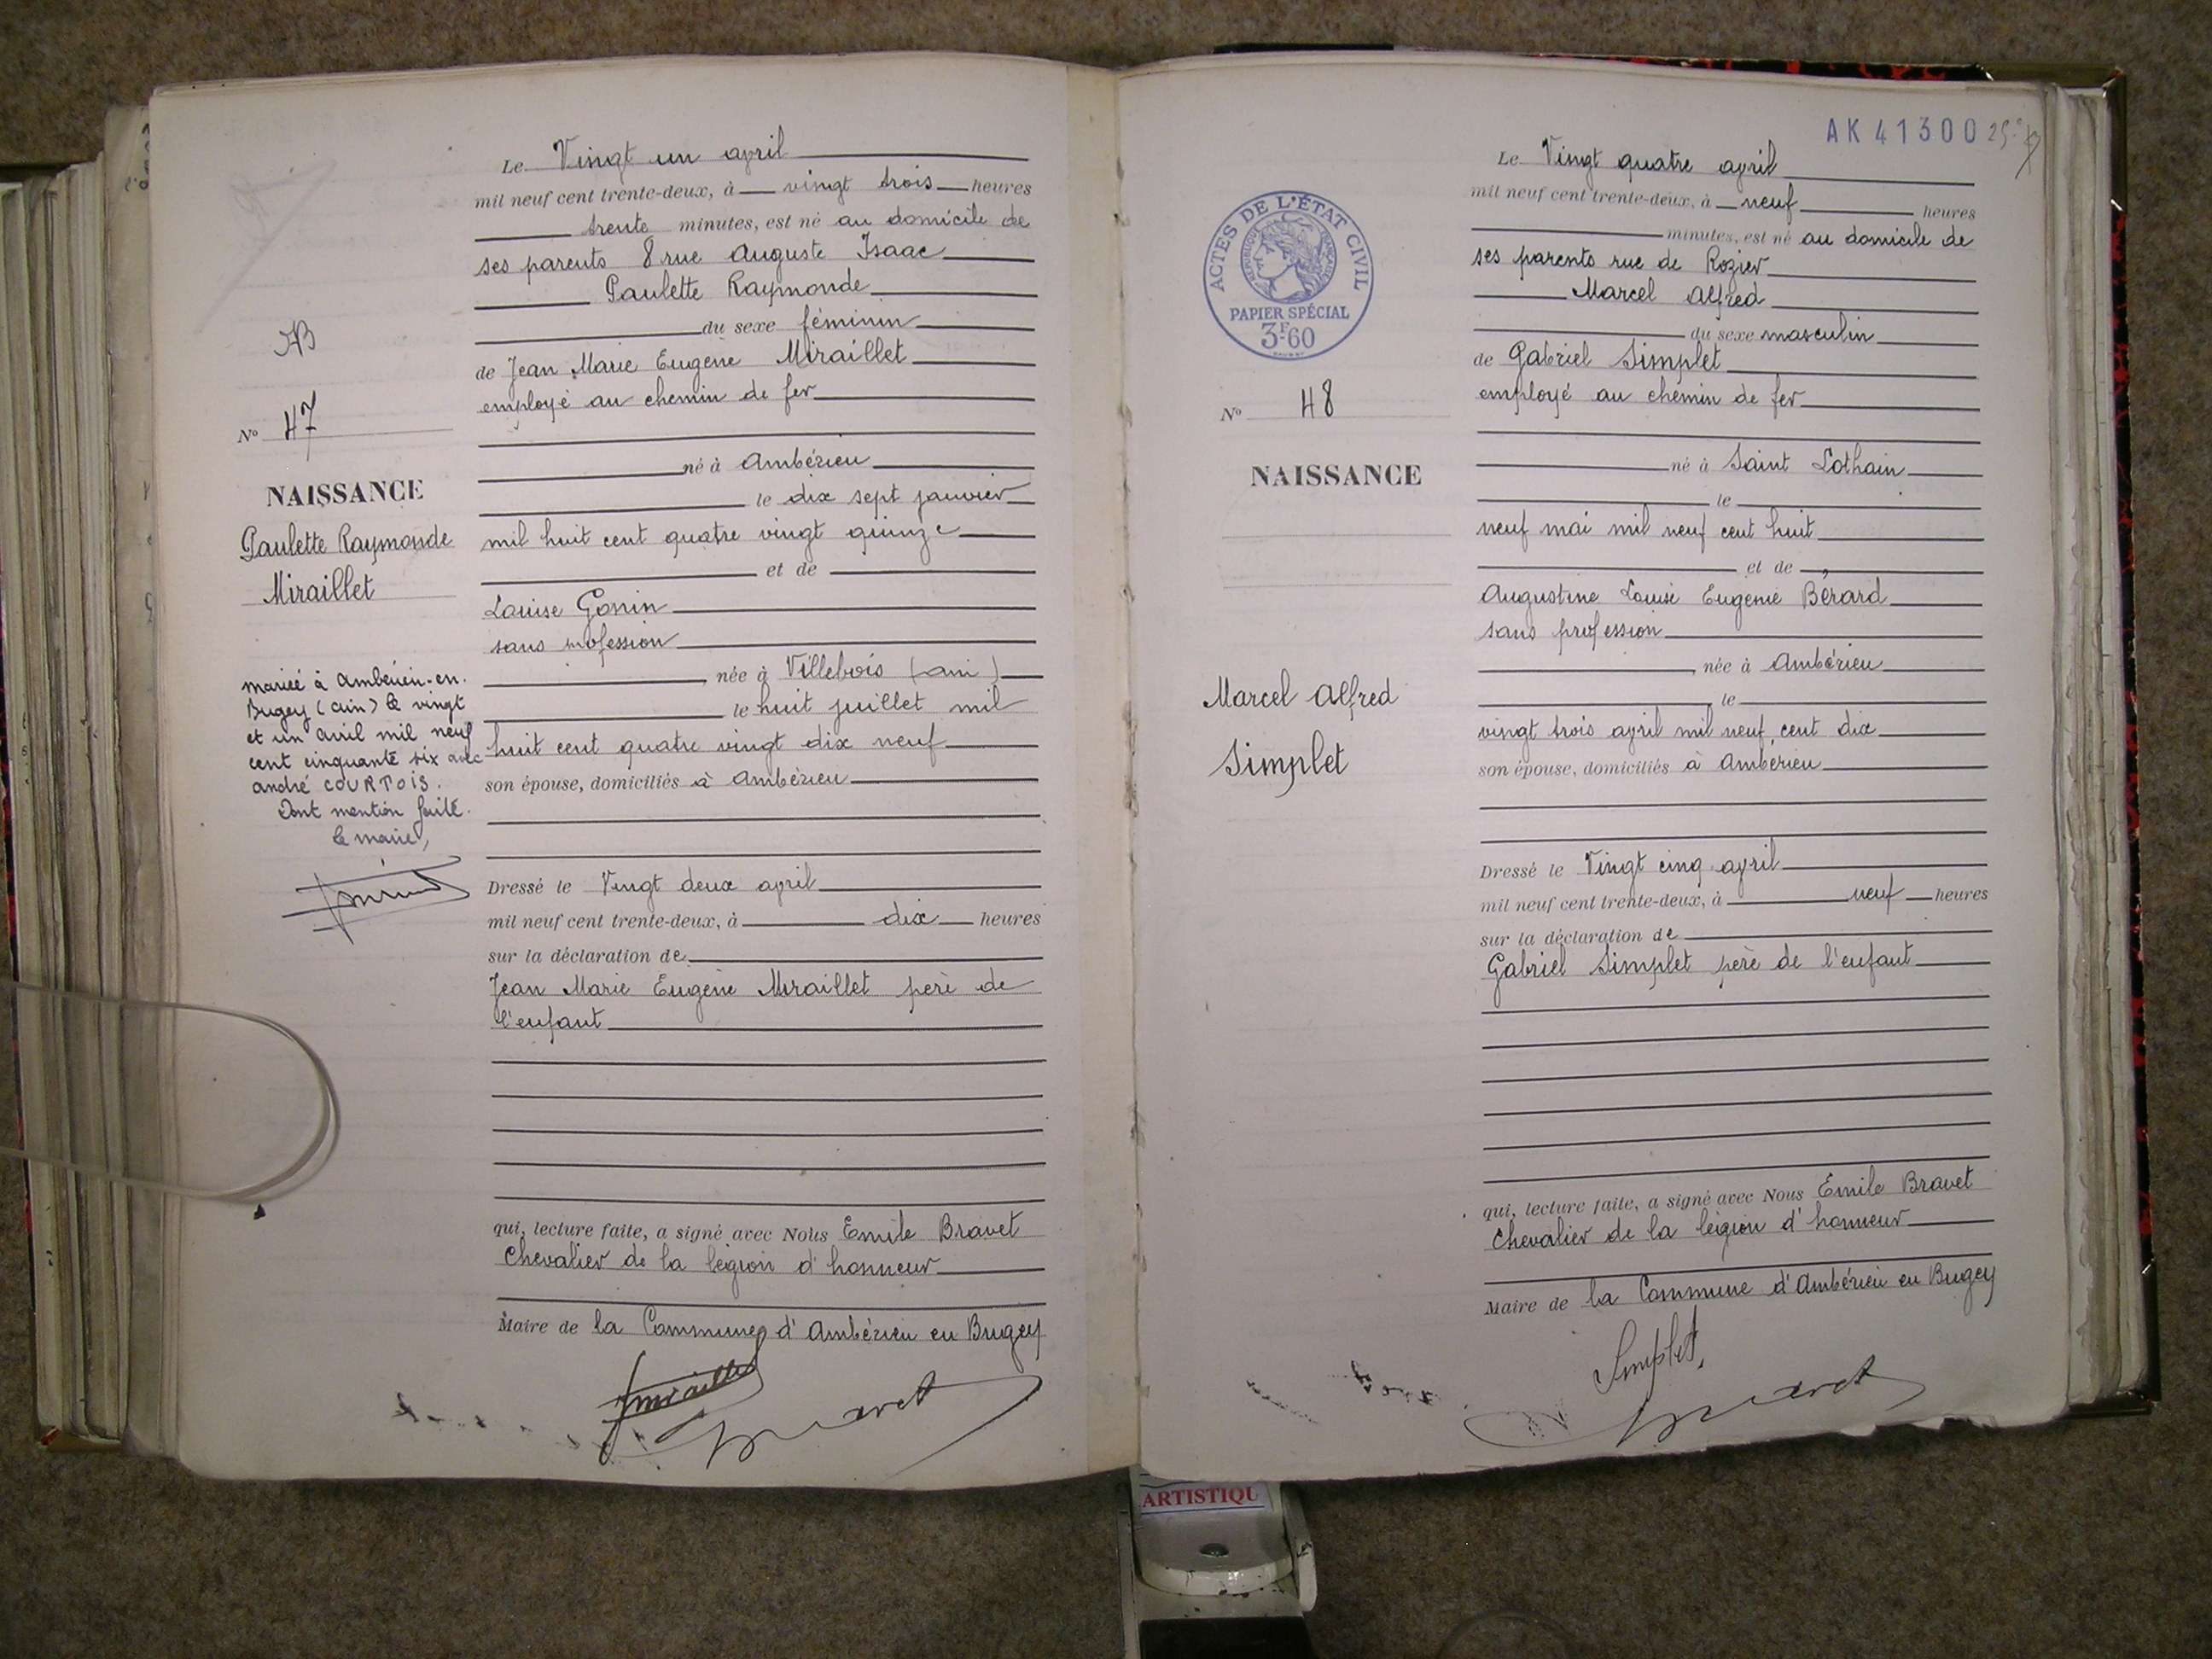 Le Vingt un april
mil neuf cent trente-deux, à vingt trois heures
trente minutes, est né au domicile de
ses parents 8 rue Auguste Isaac
Paulette Raymonde
du sexe féminin
de Jean Marie Eugène Miraillet
employé au chemin de fer
né à Ambérieu
le dix sept janvier
mil huit cent quatre vingt quinze
et de
Louise Gonin
sans profession
née à Villebois (ain)
le huit juillet mil
huit cent quatre vingt dix neuf
son épouse, domiciliés à Ambérieu
Dressé le Vingt deux april
mil neuf cent trente-deux, à dix heures
sur la déclaration de
Jean Marie Eugène Miraillet père de
l'enfant
qui, lecture faite, a signé avec Nous Emile Bravet
Chevalier de la légion d'honneur
Maire de la Commune d'Ambérieu en Bugey
No 47
NAISSANCE
Paulette Raymonde
Miraillet
mariée à Ambérieu-en-
Bugey (Ain) le vingt
et un avril mil neuf
cent cinquante six avec
andré COURTOIS.
Dont mention faite.
le maire,
AK 41300
ACTES DE L'ÉTAT CIVIL
RÉPUBLIQUE FRANÇAISE
PAPIER SPÉCIAL
3F60
No 48
NAISSANCE
Marcel Alfred
Simplet
Le Vingt quatre april
mil neuf cent trente-deux, à neuf heures
minutes, est né au domicile de
ses parents rue de Rozier
Marcel Alfred
du sexe masculin
de Gabriel Simplet
employé au chemin de fer
né à Saint Lothain
le
neuf mai mil neuf cent huit
et de
Augustine Louise Eugenie Bérard
sans profession
née à Ambérieu
le
vingt trois april mil neuf cent dix
son épouse, domiciliés à Ambérieu
Dressé le Vingt cinq april
mil neuf cent trente-deux, à neuf heures
sur la déclaration de
Gabriel Simplet père de l'enfant
qui, lecture faite, a signé avec Nous Emile Bravet
Chevalier de la légion d'honneur
Maire de la Commune d'Ambérieu en Bugey
Simplet
ARTISTIQU